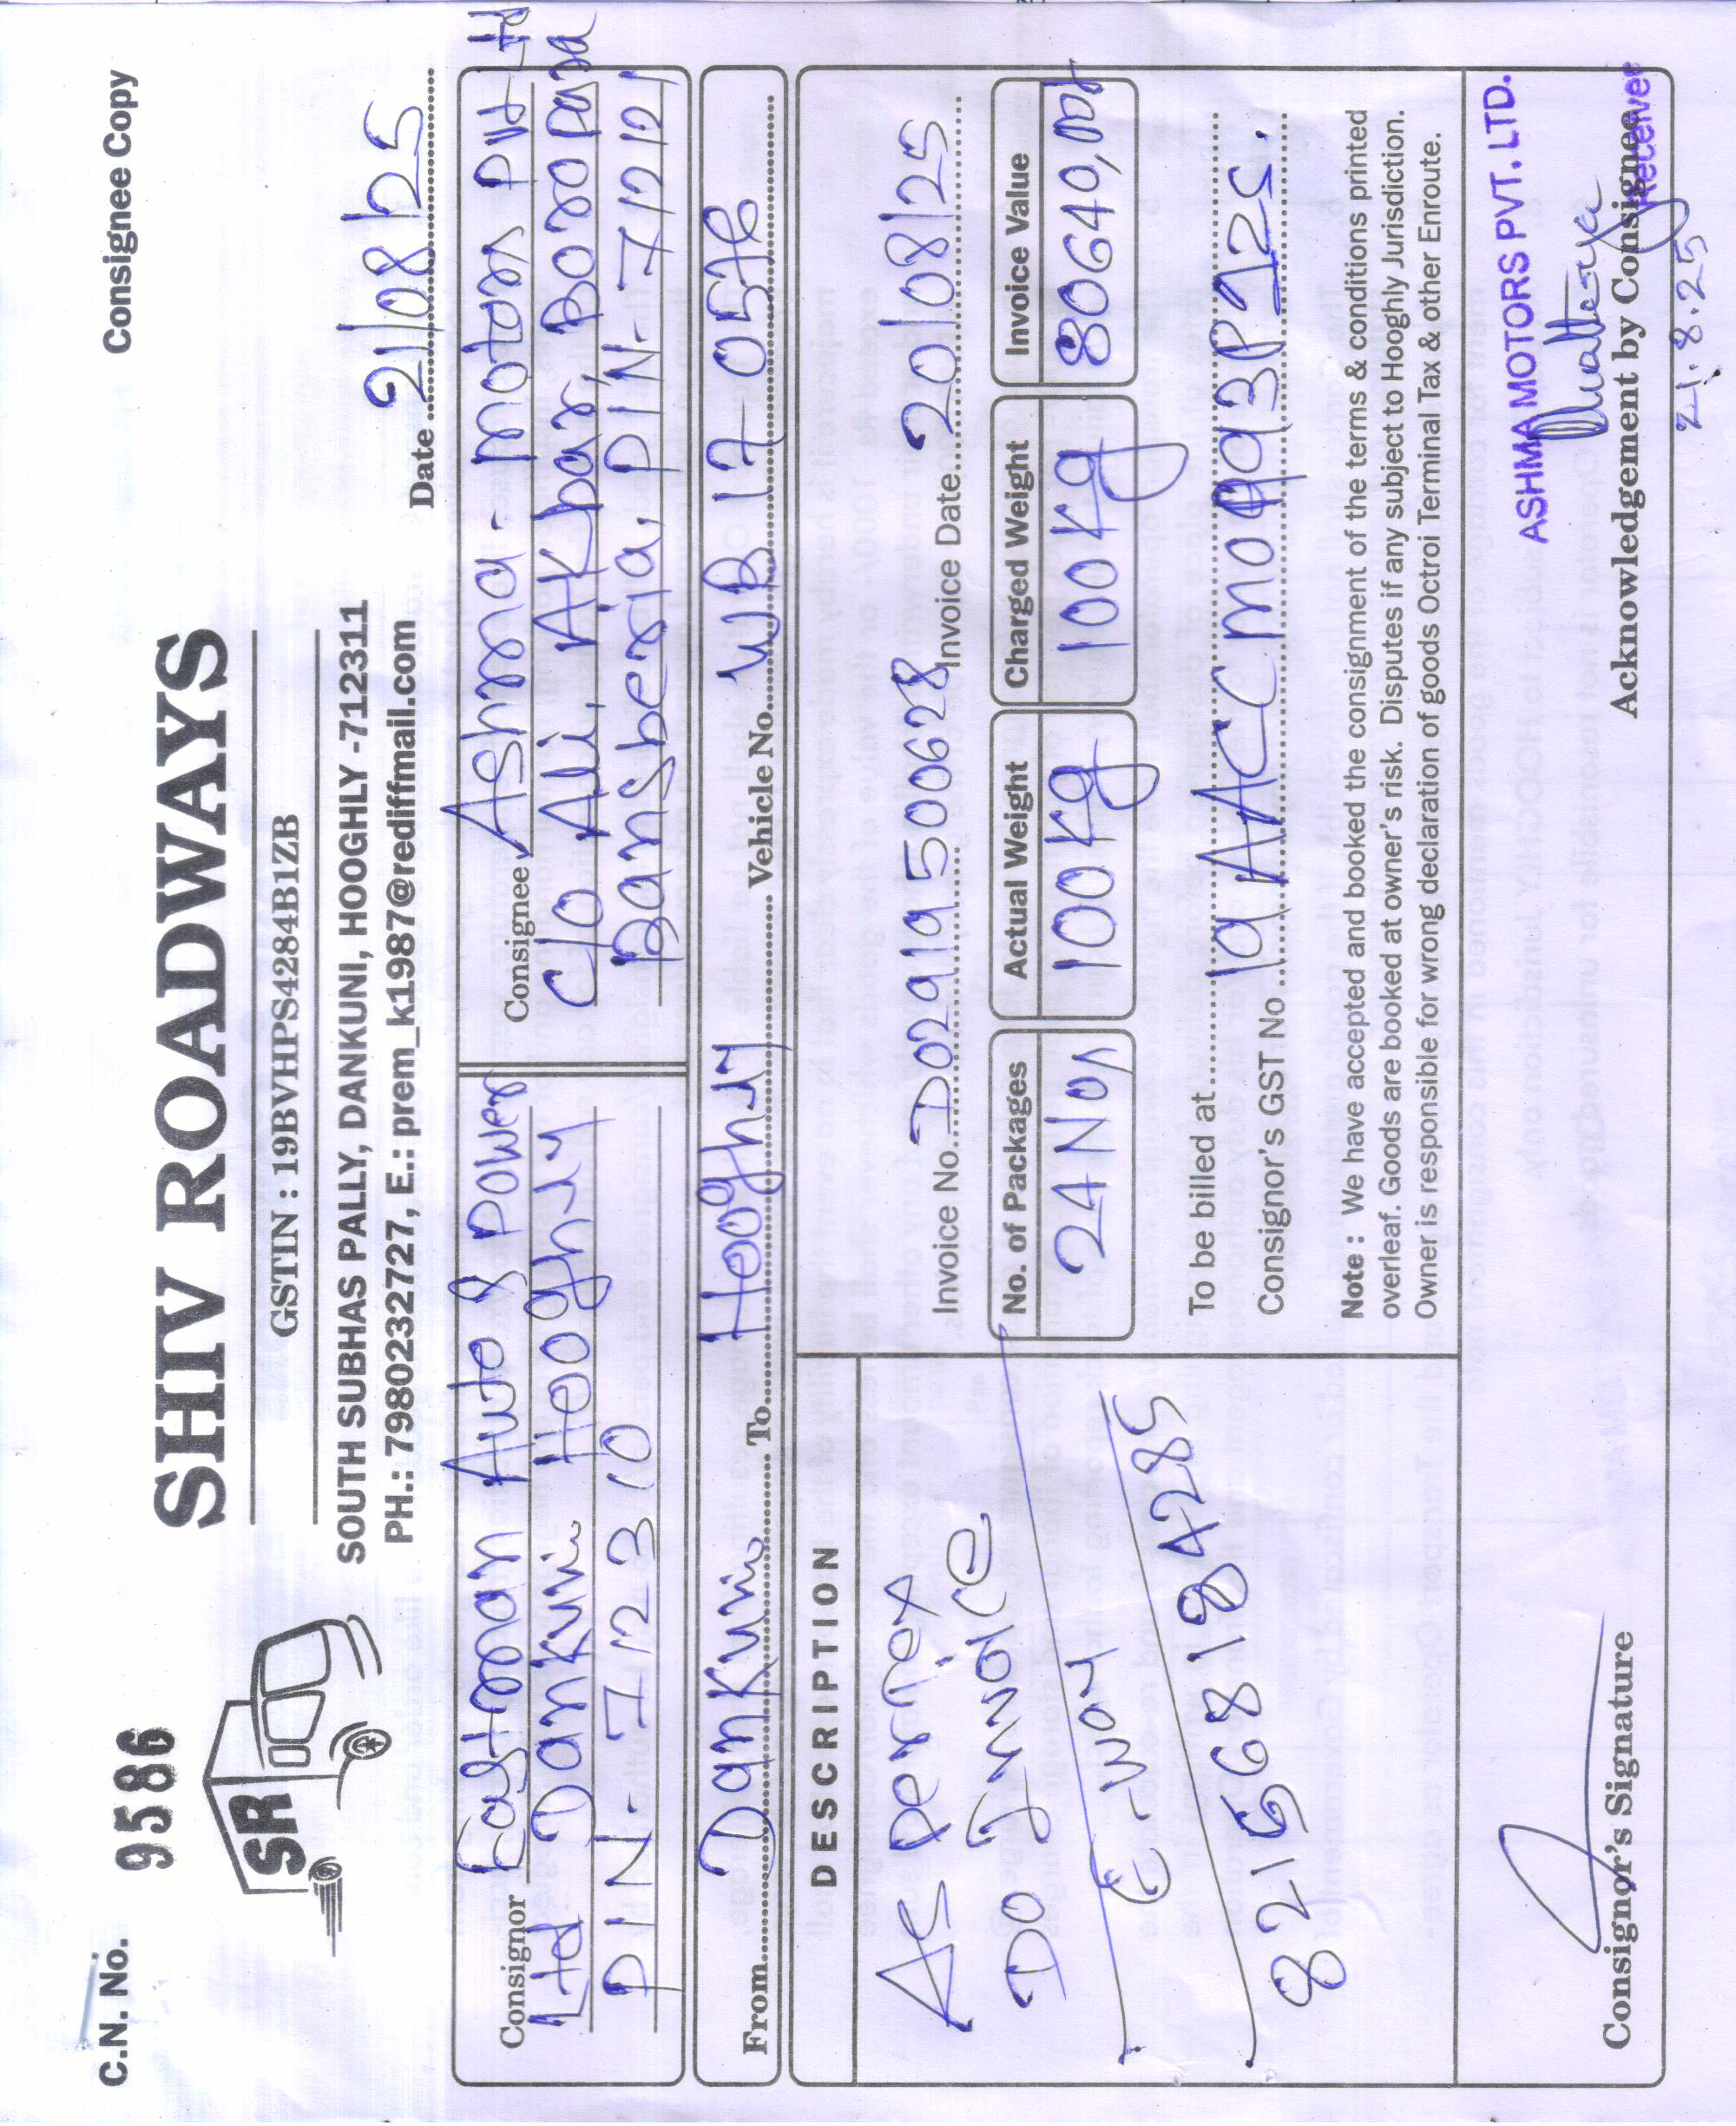 Consignee Copy
C.N. No. 9586
SR
SHIV ROADWAYS
GSTIN : 19BVHPS4284B1ZB
SOUTH SUBHAS PALLY, DANKUNI, HOOGHLY -712311
PH.: 7980232727, E.: prem_k1987@rediffmail.com
Date 21/08/25
Consignor Eastman Auto & Power
Ltd Dankuni Hooghly
PIN- 712310
Consignee Ashma - motors Pvt Ltd
C/o Ali, AKbar, Boropara
Bansberia, PIN- 7121
From Dankuni To Hooghly Vehicle No. WB 17-0576
DESCRIPTION
AS Per Tex
DO Invoice
E-way
821568184285
Invoice No. D02919500628 Invoice Date 20/08/25
No. of Packages Actual Weight Charged Weight Invoice Value
24 Nos 100Kg 100Kg 80640,00/
To be billed at
Consignor's GST No 19AACM0993P1ZS.
Note : We have accepted and booked the consignment of the terms & conditions printed
overleaf. Goods are booked at owner's risk. Disputes if any subject to Hooghly Jurisdiction.
Owner is responsible for wrong declaration of goods Octroi Terminal Tax & other Enroute.
ASHMA MOTORS PVT. LTD.
Receiver
Consignor's Signature
Acknowledgement by Consignee
21.8.25